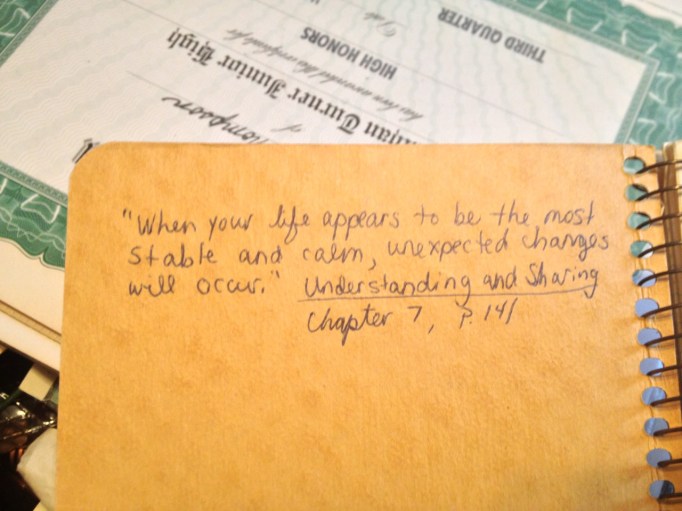 THIRD QUARTER
HIGH HONORS
has been awarded this certificate for
Turner Junior High
of
Thompson
"When your life appears to be the most
stable and calm, unexpected changes
will occur." Understanding and Sharing
Chapter 7, P. 141